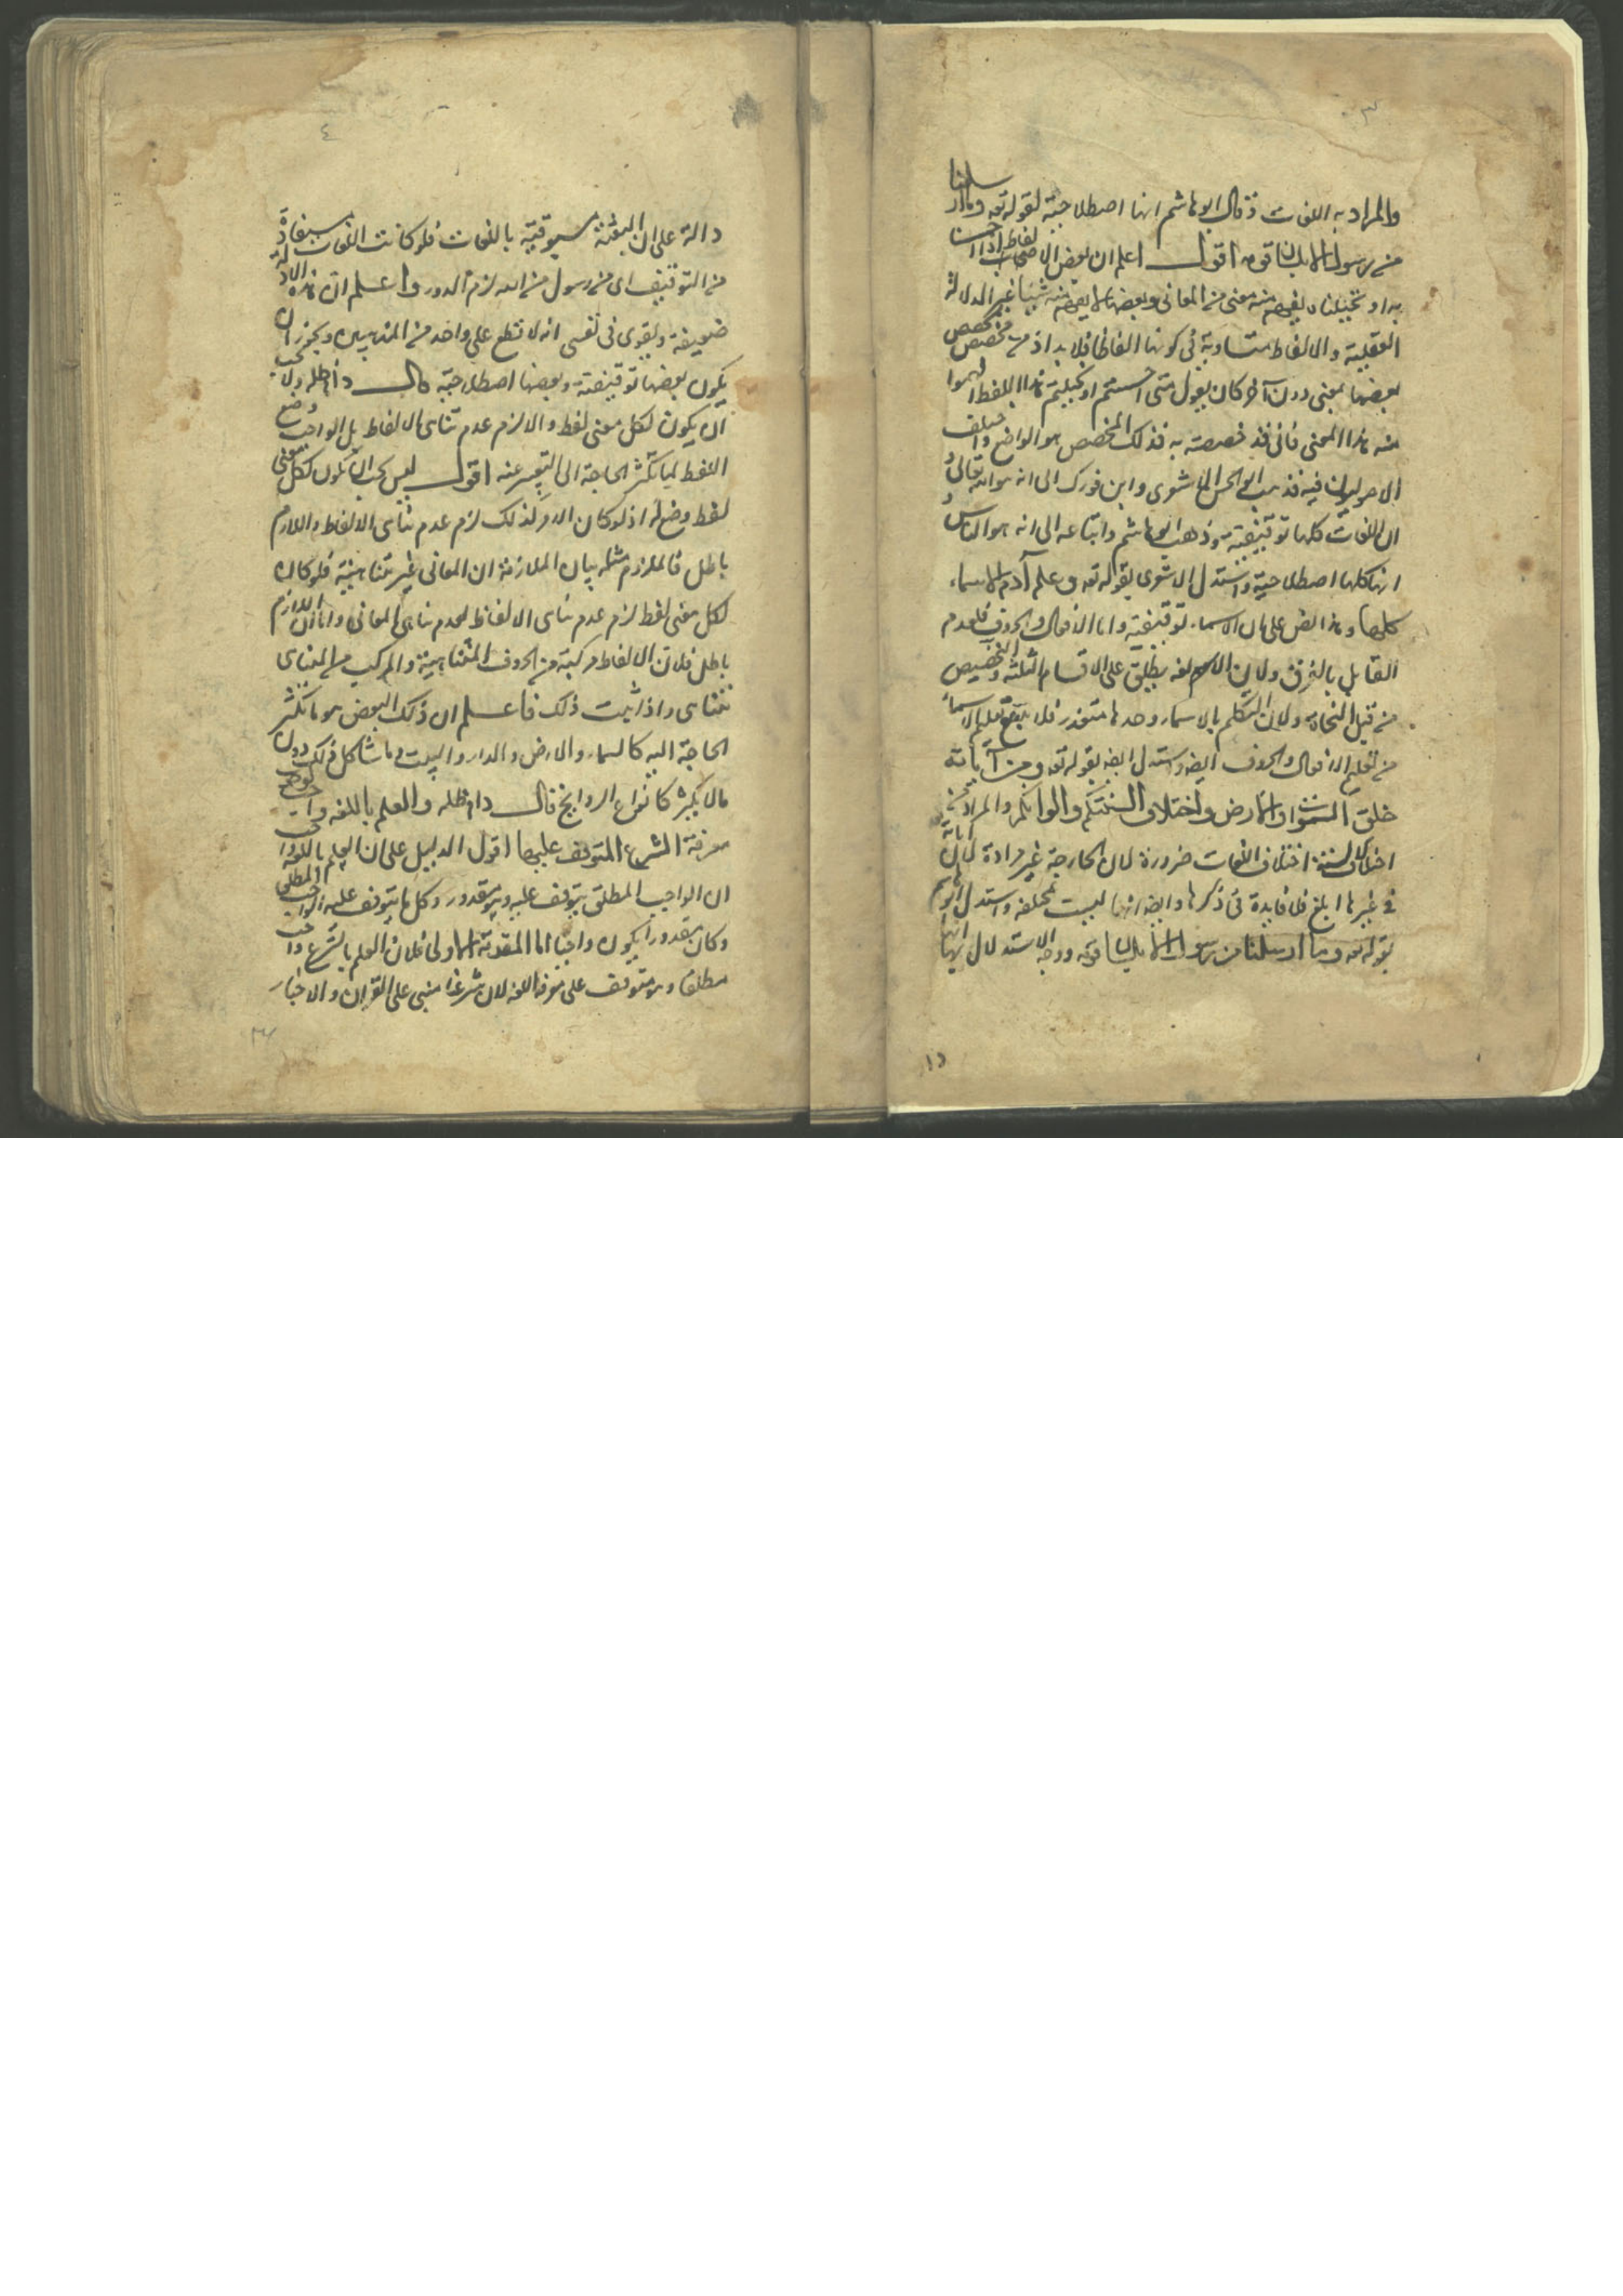 ٣
والمراد به اللغات وقال ابو هاشم انها اصطلاحية لقوله تعه وما ارسلنا
من رسول الا بلسان قومه اقول اعلم ان بعض الاصوات الفاظ اذا احسسنا
به او تخيلناه يفهم منه معنى من المعانى وبعضها لا يفهم منه شيئا غير الدلالة
العقلية والالفاظ متساوية فى كونها الفاظا فلا بد اذن من مخصص يخصص
بعضها بمعنى دون آخر كان يقول متى احسستم او تخيلتم هذا اللفظ افهموا
منه هذا المعنى فانى قد خصصته به فذلك المخصص هو الواضع واختلف
الاصوليون فيه فذهب ابو الحسن الاشعرى وابن فورك الى انه هو الله تعالى و
ان اللغات كلها توقيفية وذهب ابو هاشم واتباعه الى انه هو الناس و
انها كلها اصطلاحية واستدل الاشعرى بقوله تعه وعلم آدم الاسماء
كلها وهذا نص على ان الاسماء توقيفية واما الافعال والحروف فلعدم
القايل بالفرق ولان الاسم لغة يطلق على الاقسام الثلثة والتخصيص
من قبل النحاة ولان التكلم بالاسماء وحدها متعذر فلا بد مع تعليم الاسماء
من تعليم الافعال والحروف ايضا واستدل ايضا بقوله تعه ومن آياته
خلق السموات والارض واختلاف السنتكم والوانكم والمراد من
اختلاف الالسنة اختلاف اللغات ضرورة لان الجارحة غير مرادة لان
فى غيرها ابلغ فلا فايدة فى ذكرها وايضا انها ليست مختلفة واستدل ابو هاشم
بقوله تعه وما ارسلنا من رسول الا بلسان قومه ووجه الاستدلال انها
١٥
٤
دالة على ان البعثة مسبوقية باللغات فلو كانت اللغات مستفادة
من التوقيف اى من رسول من الله لزم الدور واعلم ان هذه الادلة
ضعيفة ويقوى فى نفسى انه لا قطع على واحد من المذهبين ويجوز ان
يكون بعضها توقيفية وبعضها اصطلاحية قال دام ظله ولا يجب
ان يكون لكل معنى لفظ والا لزم عدم تناهى الالفاظ بل الواجب وضع
اللفظ لما تكثر الحاجة الى التعبير عنه اقول ليس يجب ان يكون لكل معنى
لفظ وضع له اذ لو كان الامر كذلك لزم عدم تناهى الالفاظ واللازم
باطل فالملزوم مثله بيان الملازمة ان المعانى غير متناهية فلو كان
لكل معنى لفظ لزم عدم تناهى الالفاظ لعدم تناهى المعانى واما ان اللازم
باطل فلان الالفاظ مركبة من الحروف المتناهية والمركب من المتناهى
متناهى واذا ثبت ذلك فاعلم ان ذلك البعض هو ما تكثر
الحاجة اليه كالسماء والارض والدار والبيت وما شاكل ذلك دون
ما لا يكثر كانواع الروايح قال دام ظله والعلم باللغة واجب لوجوب
معرفة الشرع المتوقف عليها اقول الدليل على ان العلم باللغة واجب
ان الواجب المطلق يتوقف عليه وهو مقدور وكل ما يتوقف عليه الواجب المطلق
وكان مقدورا يكون واجبا اما المقدمة الاولى فلان العلم بالشرع واجب
مطلقا وهو متوقف على معرفة اللغة لان شرعنا مبنى على القران والاخبار